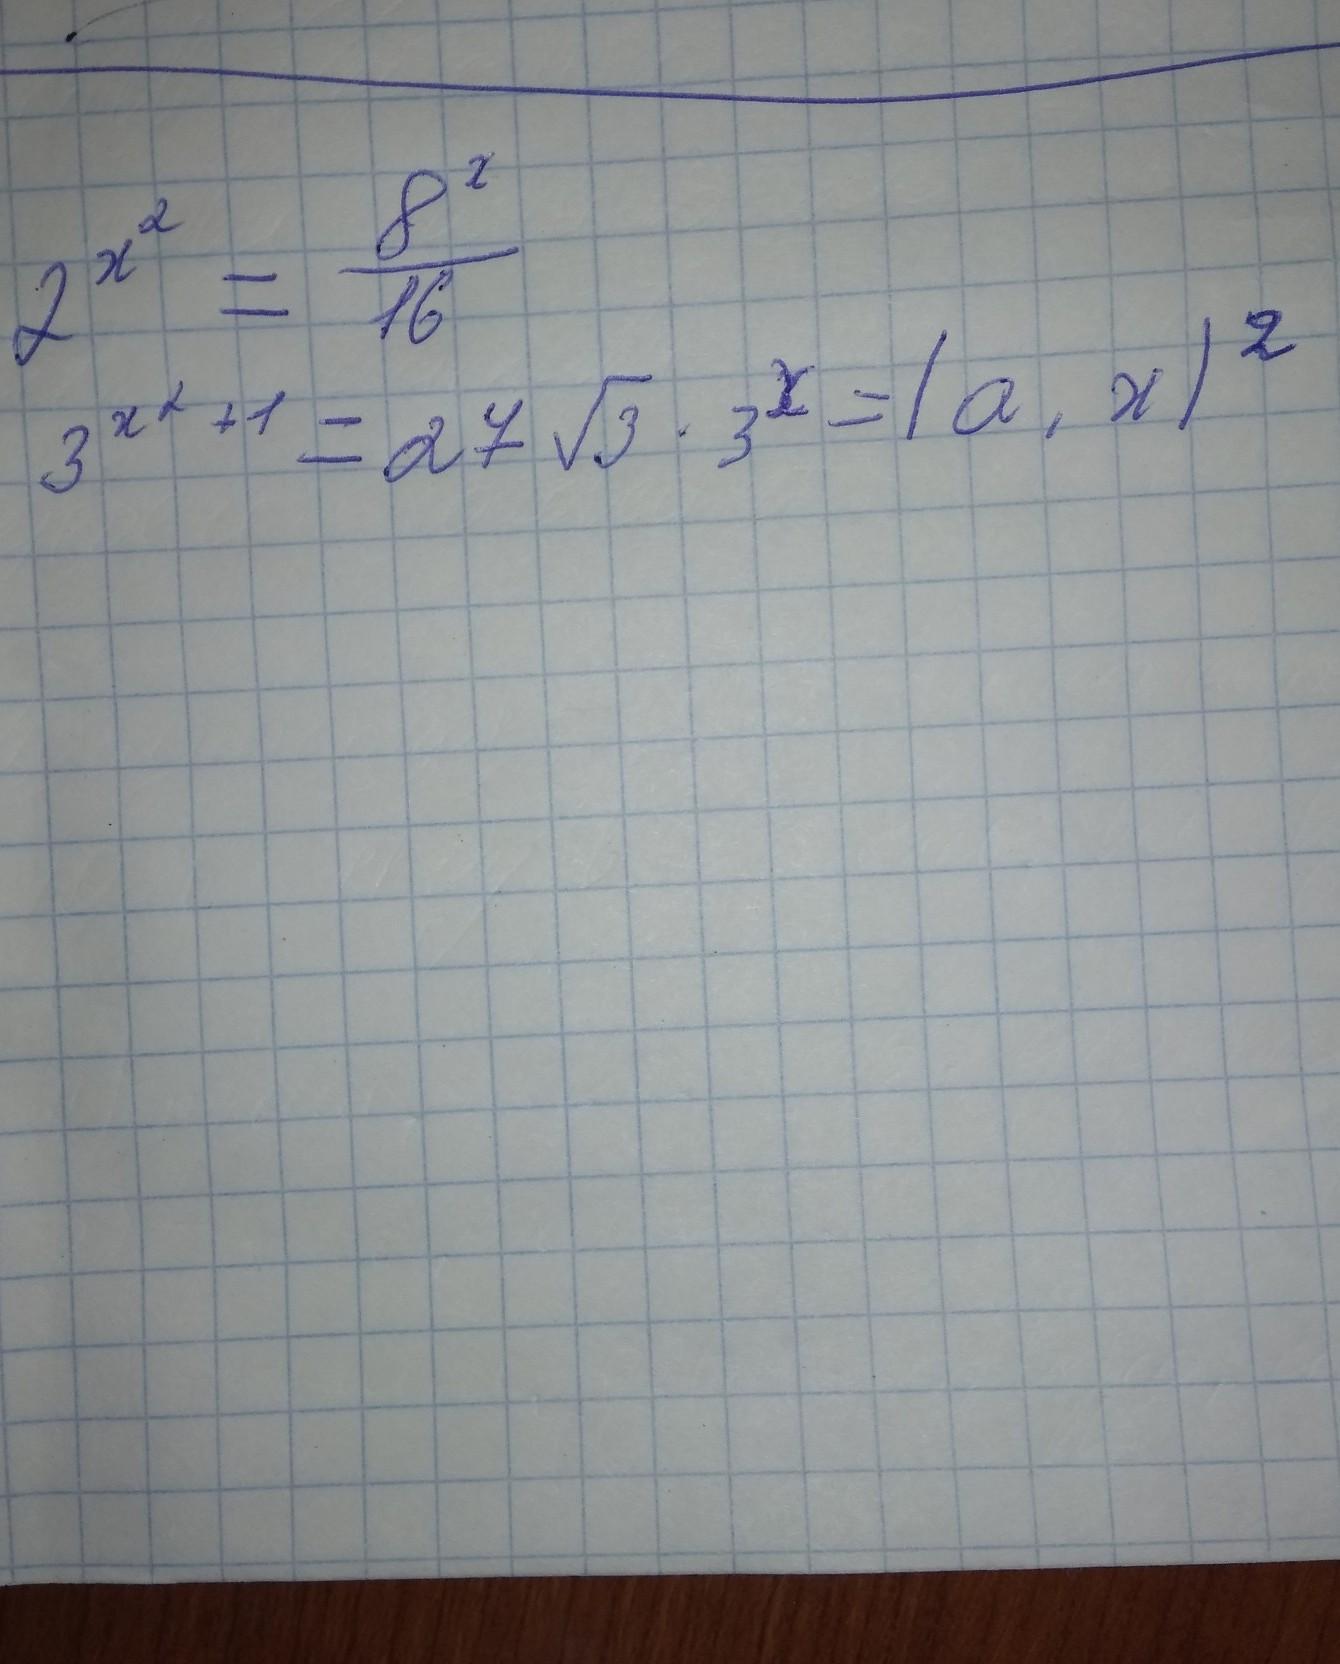 2^{x^2} = \frac{8^x}{16}
3^{x^2+1} = 27\sqrt{3} \cdot 3^x = |a, x|^2